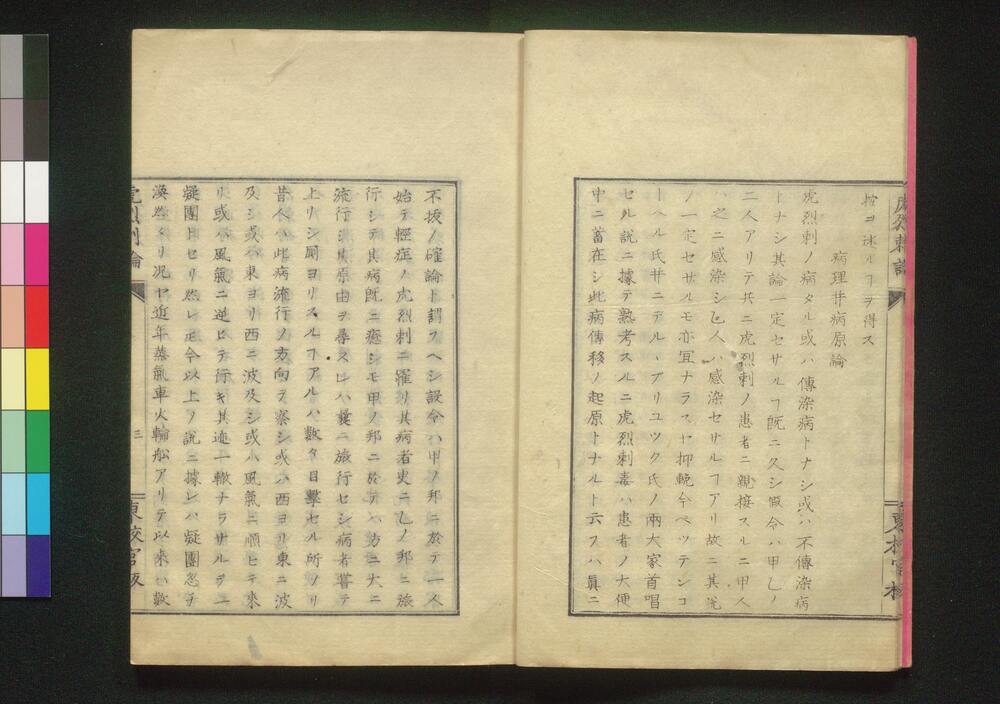 ヲ述ルヿヲ得ス
病理并病原論
虎烈剌ノ病タル或ハ傳染病トナシ或ハ不傳染病
トナシ其論一定セサルヿ既ニ久シ假令ハ甲乙ノ
二人アリテ共ニ虎烈剌ノ患者ニ親接スルニ甲人
ハ之ニ感染シ乙人ハ感染セサルヿアリ故ニ其説
ノ一定セサルモ亦宜ナラスヤ抑輓今ペッテンコ
ーヘル氏并ニデル、ブリユツク氏ノ兩大家首唱
セル説ニ據テ熟考スルニ虎烈剌毒ハ患者ノ大便
中ニ蓄在シ此病傳移ノ起原トナルト云フハ眞ニ
東校官板
不抜ノ確論ト謂フヘシ設令ハ甲ノ邦ニ於テ一人
始テ輕症ノ虎烈剌ニ罹リ其病者更ニ乙ノ邦ニ旅
行シテ其病既ニ癒シモ甲ノ邦ニ於テハ方ニ大ニ
流行シ其原由ヲ尋スレハ曩ニ旅行セシ病者嘗テ
上リシ厠ヨリスルヿアルハ數々目撃セル所ノリ
昔人ハ此病流行ノ方向ヲ察シ或ハ西ヨリ東ニ波
及シ或ハ東ヨリ西ニ波及シ或ハ風氣ニ順ヒテ來
リ或ハ風氣ニ逆ヒテ行キ其迹一轍ナラサルヲ一
疑團トセリ然レ𪜈今以上ノ説ニ據レハ疑團忽チ
渙然タリ况ヤ近年蒸氣車火輪舩アリテ以來ハ數
三
東校官板